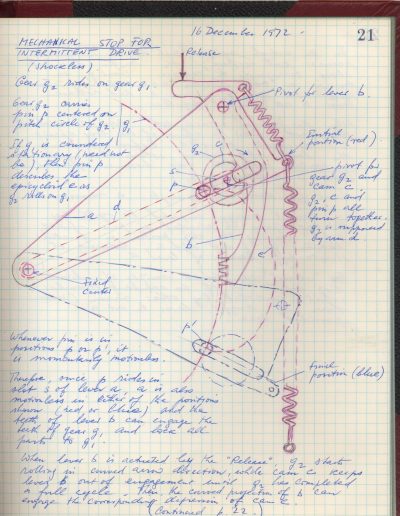 16 December 1972.
21
MECHANICAL STOP FOR
INTERMITTENT DRIVE
(Shockless)
Release
Gear g2 rides on gear g1.
Gear g2 carries
pin p centered on
pitch circle of g2
If g1 is considered
stationary (need not
be), then pin p
describes the
epicycloid e as
g2 rolls on g1
Pivot for lever b.
Initial
position (red).
pivot for
gear g2 and
cam c.
g2, c and
pin p all
turn together.
g2 is supported
by arm d
g1
g2
c
s
p
a
d
b
e
Fixed
center
p'
Final
position (blue)
Whenever pin is in
positions p or p', it
is momentarily motionless.
Therefore, since p rides in
slot s of lever a, a is also
motionless in either of the positions
shown (red or blue) and the
teeth of lever b can engage the
teeth of gear g1 and lock all
parts to g1.
When lever b is actuated by the "Release", g2 starts
rolling in curved arrow direction, while cam c keeps
lever b out of engagement until g2 has completed
a full cycle. Then the curved projection of b can
engage the corresponding depression of cam c
(Continued p. 22.)